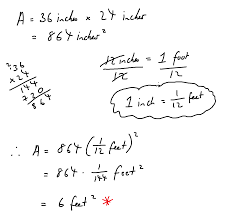 A = 36 inches × 24 inches
= 864 inches²
36
× 24
144
720
864
12 inches / 12 = 1 foot / 12
1 inch = 1/12 feet
∴ A = 864 (1/12 feet)²
= 864 · 1/144 feet²
= 6 feet² *